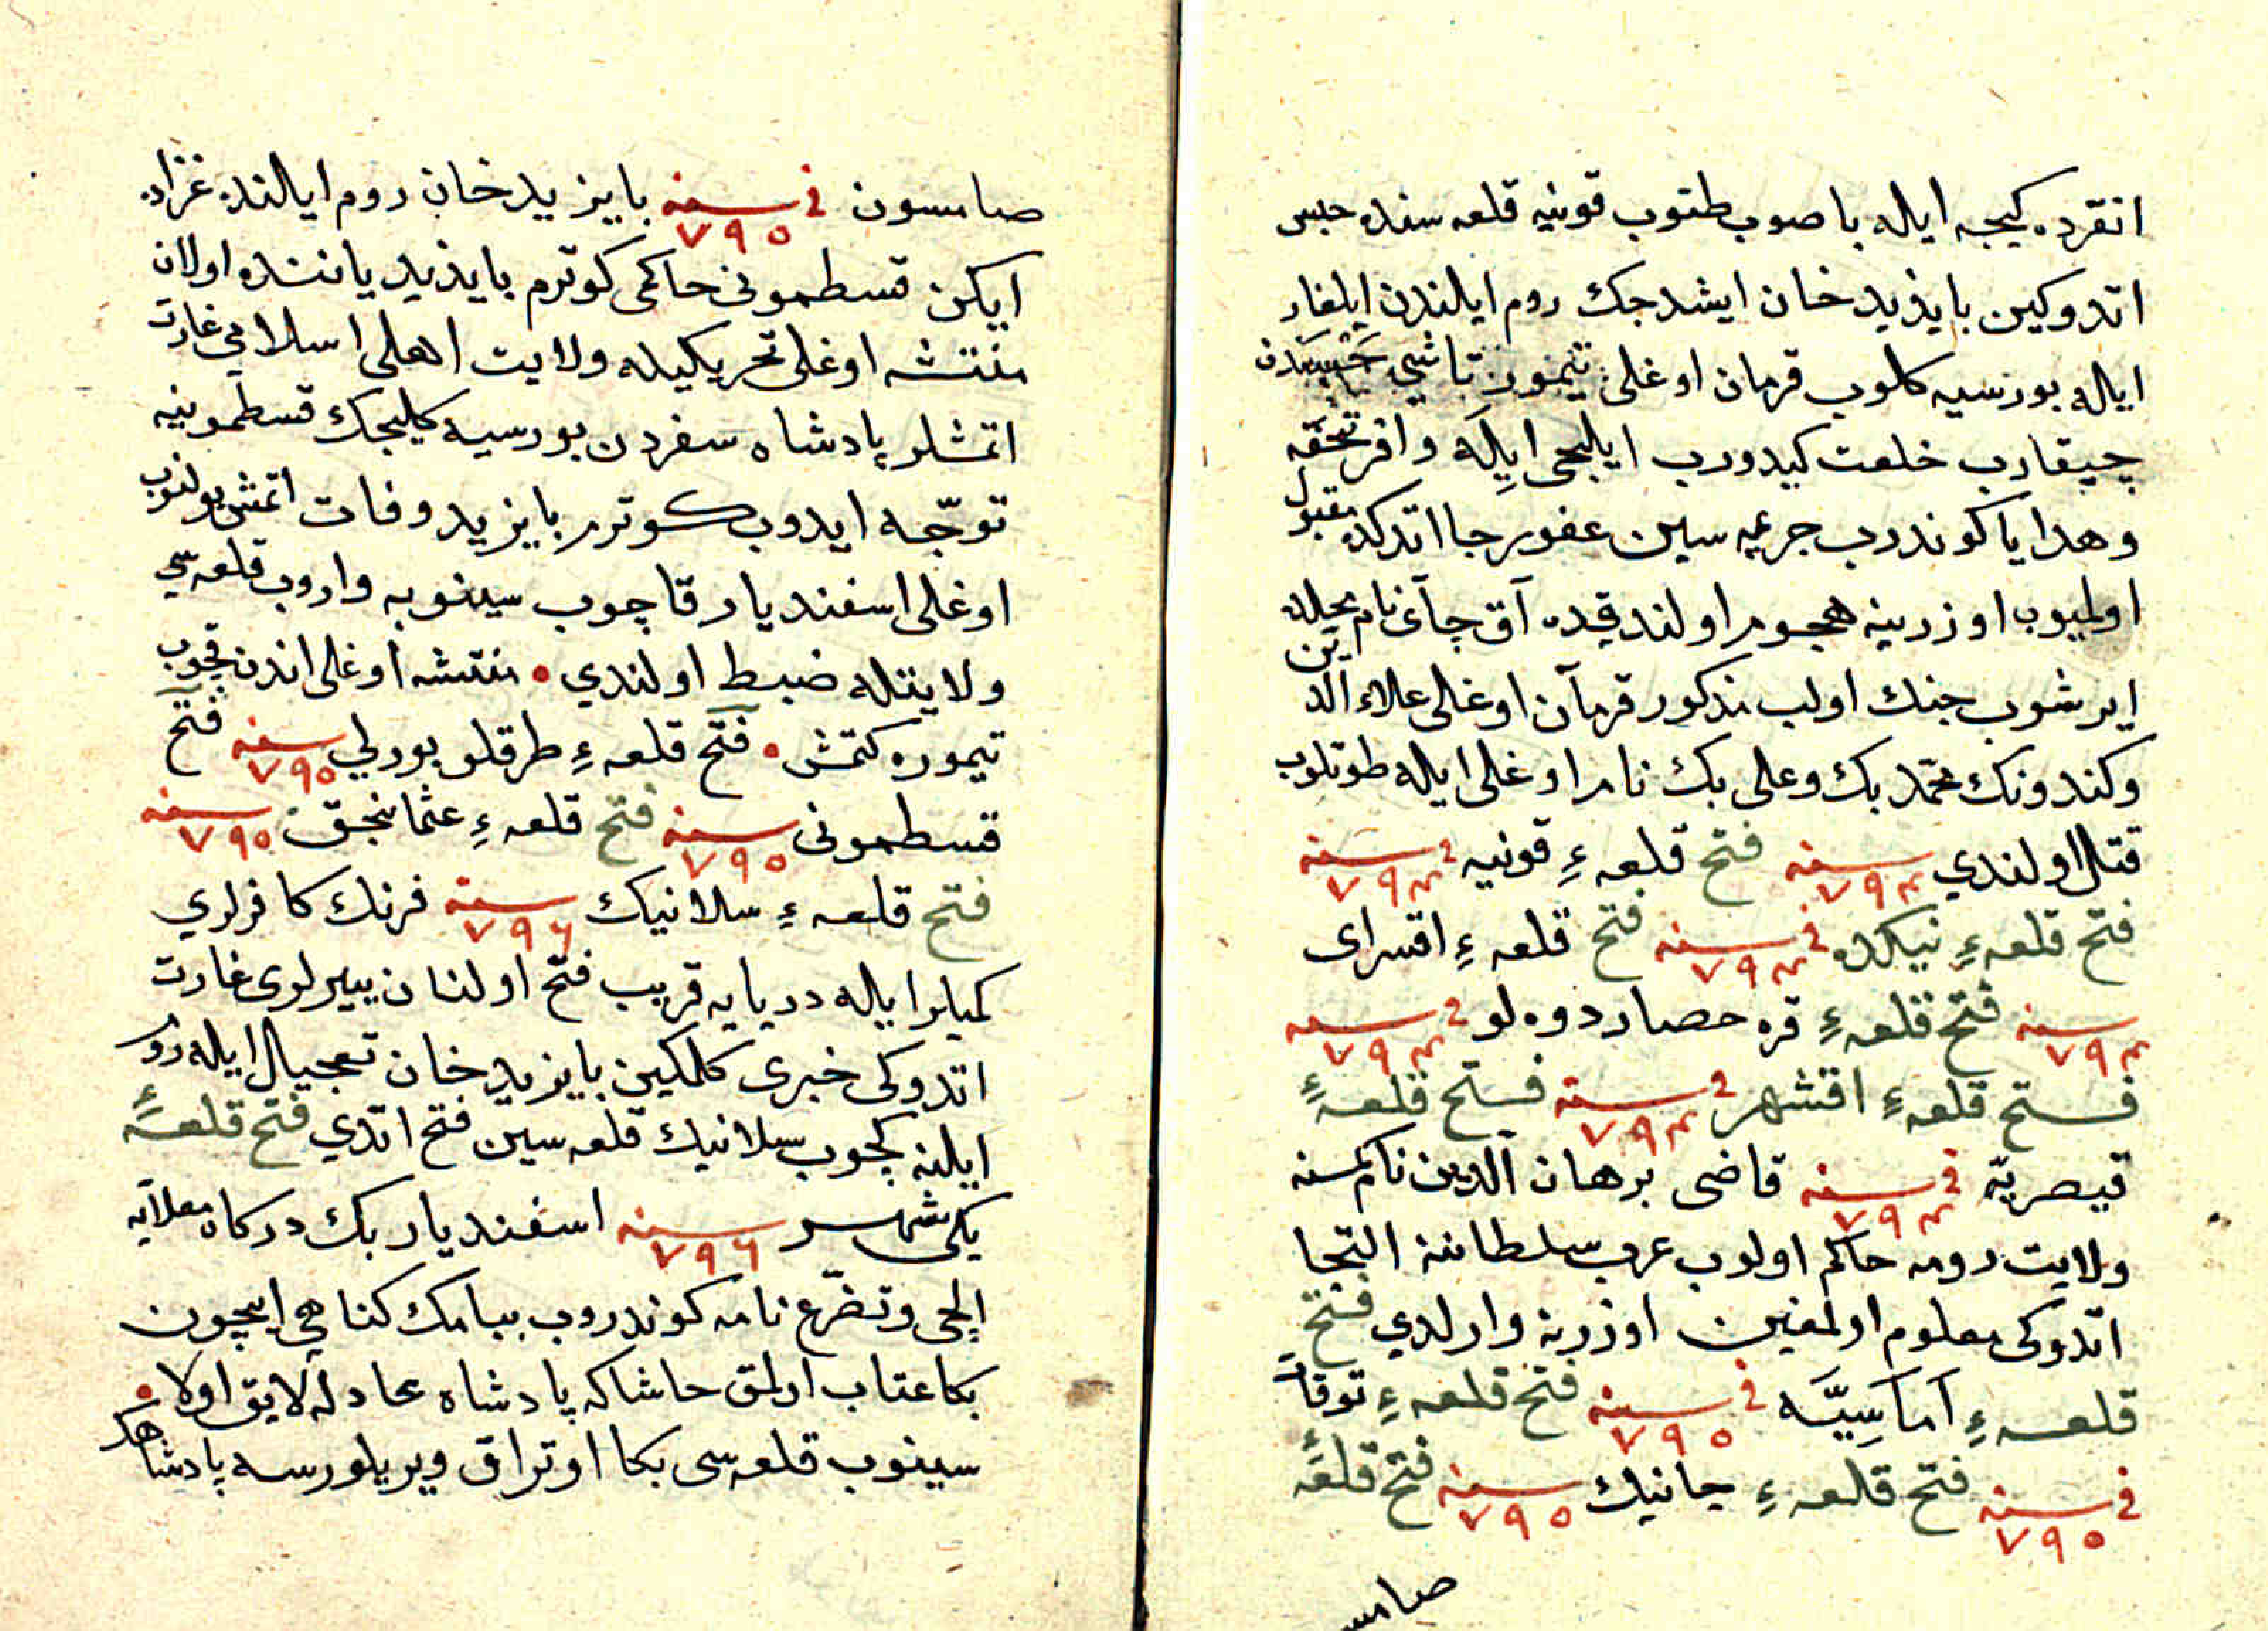 انقرده كيجه ايله باصوب طتوب قونيه قلعه سنده حبس
اتدوكين بايزيد خان ايشدجك روم ايلندن ايلغار
ايله بورسيه كلوب قرمان اوغلى تيمور تاشى حبسدن
چيقارب خلعت كيدورب ايلچى ايله وافر تحفه
وهدايا كوندرب جريمه سين عفو رجا اتدكده مقبول
اولميوب اوزرينه هجوم اولندقده آق چآى نام محلده
ايرشوب جنك اولب مذكور قرمآن اوغلى علاء الدين
وكندونك محمد بك وعلى بك نام اوغلى ايله طوتلوب
قتل اولندي سنه ٧٩٤ فتح قلعهء قونيه فى سنه ٧٩٤
فتح قلعهء نيكده فى سنه ٧٩٤ فتح قلعهء اقسراى
سنه ٧٩٤ فتح قلعهء قره حصار دوه لو فى سنه ٧٩٤
فتح قلعهء اقشهر فى سنه ٧٩٤ فتح قلعهء
قيصريّه فى سنه ٧٩٤ قاضى برهان الدين نام كمسنه
ولايت رومه حاكم اولوب عرب سلطاننه التجا
اتدوكى معلوم اولمغين اوزرينه وارلدي فتح
قلعهء آماسِيَّه فى سنه ٧٩٥ فتح قلعهء توقات
فى سنه ٧٩٥ فتح قلعهء جانيك سنه ٧٩٥ فتح قلعهء
صامسـ
صامسون فى سنه ٧٩٥ بايزيد خان روم ايلنده غزاده
ايكن قسطمونى حاكمى كوترم بايزيد ياننده اولان
منتشه اوغلى تحريكيله ولايت اهلى اسلامي غارت
اتمشلر پادشاه سفردن بورسيه كليجك قسطمونيه
توجّه ايدوب كوترم بايزيد وفات اتمش بولنوب
اوغلى اسفنديار قاچوب سينوبه واروب قلعه سي
ولايتله ضبط اولندي • منتشه اوغلى اندن قچوب
تيموره كتمش • فتح قلعهء طرقلو بورلي سنه ٧٩٥ فتح
قسطمونى سنه ٧٩٥ فتح قلعهء عثمانجق سنه ٧٩٥
فتح قلعهء سلانيك سنه ٧٩٦ فرنك كافرلري
كميلر ايله دريايه قريب فتح اولنان ييرلرى غارت
اتدوكى خبرى كلمكين بايزيد خان تعجيل ايله روم
ايلنه كچوب سلانيك قلعه سين فتح اتدي فتح قلعهء
يكى شهر سنه ٧٩٦ اسفنديار بك دركاه معلايه
ايلچى وتضرّع نامه كوندروب ببامك كناهي ايچون
بكا عتاب اولمق حاشا كه پادشاه عادله لايق اولا •
سينوب قلعه سى بكا اوتراق ويريلورسه پادشاهك